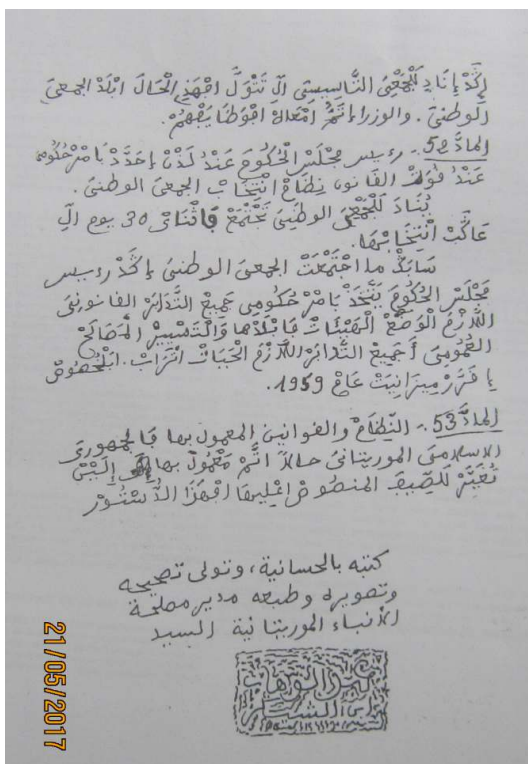 إكَدْ إنَادِ لَجْمَعِيَّ التَّاسِيسِيَّ الِّ تَتْوَلَّ اجْهَذِ الْحَالَ ابْلَدْ الجمعيَ
الوطنيَ. والوزرا اتَمُّ افْعَالْهُ افْوظَايَفْهُمْ.
المادَّ 52 - رءيس مجْلَسْ الْحُكُومَ عَنْدُ لَذْنْ إحَدَّدْ بَامْرْ حُكُومِي
عَنْدُ قُوَّتْ القَانون نِظَامْ انْتِخَابْ الجمعيَ الوطنيَ.
يُنَادَ لَلْجَمْعِيَّ الوطَنِيَ تَجْتَمَعْ فَاثْنَاتْ 30 يوم الِّ
عَاكْبَ انْتِخَابْهَا.
سَابَكْ ما اجْتَمْعَتْ الجمعيَ الوطنيَ إكَدْ رءيس
مَجْلَسْ الحُكُومَ يَتَّخَذْ بَامْرْ حَكُومِي جَمِيعْ التَّدَابَرْ القانونيَ
اللَّازْمَ الْوَضْعْ الْهَيْئَاتْ فَابْلَدْهَا وَالْتَسْيِيرْ الْمَصَالَحْ
العُمُومِيَ أُجَمِيعْ التَّدَابَرْ اللَّازْمَ الْحَيَاتْ اتْرَابْ. ابْلخُصُوصْ
إقَرَّرْ مِيزَانِيتْ عَامْ 1959.
المادَّ 53 - النِّظَامْ والقوانين المعمول بها فالجمهوريَ
الاسلاميَ الموريتانيَ حالاً اتَّمُّ مَعْمُولْ بِهَا إلَيْنْ
تُغَيَّرْ للصِّيفَ المنصُوصْ اعْلِيهَا افْهَذَا الدُّسْتُورْ
كتبه بالحسانية، وتولى تصحيحه
وتصويره وطبعه مدير مصلحة
الأنباء الموريتانية السيد
21/05/2017